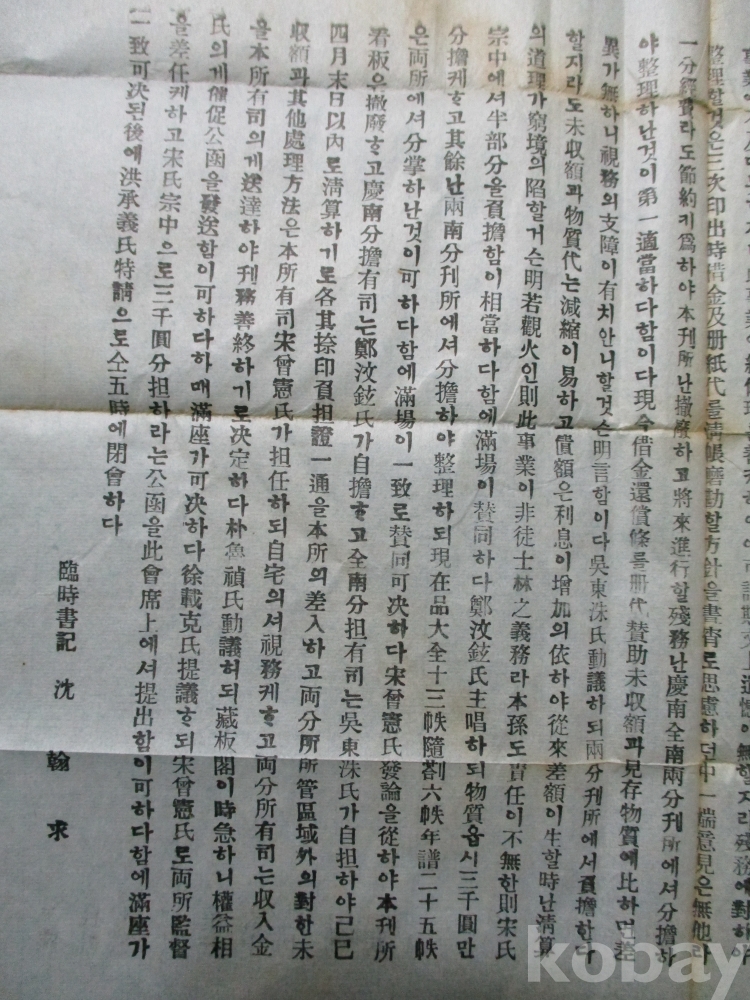 整理할것은三次印出時借金及册紙代를淸帳磨勘할方針을書齋로思慮하던中一端意見은無他라
一分經費라도節約키爲하야本刊所난撤廢하고將來進行할殘務난慶南全南兩分刊所에셔分擔하
야整理하난것이第一適當하다함이다現今借金還償條를册代贊助未收額과見存物質에比하면差
異가無하니視務의支障이有치안니할것슨明言함이다吳東洙氏動議하되兩分刊所에서負擔한다
할지라도未收額과物質代는減縮이易하고債額은利息이增加의依하야從來差額이生할時난淸算
의道理가窮境의陷할거슨明若觀火인則此事業이非徒士林之義務라本孫도責任이不無한則宋氏
宗中에셔半部分을負擔함이相當하다함에滿場이贊同하다鄭汶鉉氏主唱하되物質옵시三千圓만
分擔케ᄒᆞ고其餘난兩南分刊所에셔分擔하야整理하되現在品大全十三帙隨箚六帙年譜二十五帙
은両所에셔分掌하난것이可하다함에滿場이一致로贊同可决하다宋曾憲氏發論을從하야本刊所
看板은撤廢ᄒᆞ고慶南分擔有司는鄭汶鉉氏가自擔ᄒᆞ고全南分担有司는吳東洙氏가自担하야己巳
四月末日以內로淸算하기로各其捺印負担證一通을本所의差入하고両分所所管區域外의對한未
収額과其他處理方法은本所有司宋曾憲氏가担任하되自宅의셔視務케ᄒᆞ고両分所有司는収入金
을本所有司의게送達하야刊務善終하기로决定허다朴魯禎氏動議허되藏板閣이時急하니權益相
氏의게催促公函을發送함이可하다하매滿座가可决하다徐載克氏提議ᄒᆞ되宋曾憲氏로両所監督
을差任케하고宋氏宗中으로三千圓分担하라는公函을此會席上에셔提出함이可하다함에滿座가
一致可决된後에洪承義氏特請으로仝五時에閉會하다
臨時書記 沈 翰 求
kobay